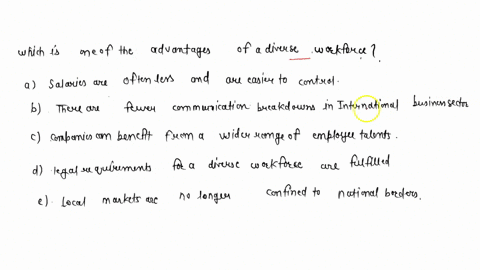 which is one of the advantages of a diverse workforce?
a) Salaries are often less and are easier to control.
b) There are fewer communication breakdowns in International business sector
c) companies can benefit from a wider range of employee talents.
d) legal requirements for a diverse workforce are fulfilled
e) Local markets are no longer confined to national borders.